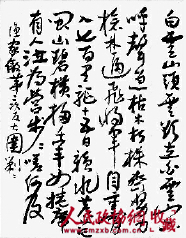 白云山头云欲立白云山下
呼声急枯木朽株齐努力
枪林逼飞将军自重霄
入七百里驱十五日赣水苍茫
闽山碧横扫千军如卷席
有人泣为营步步嗟何及
渔家傲